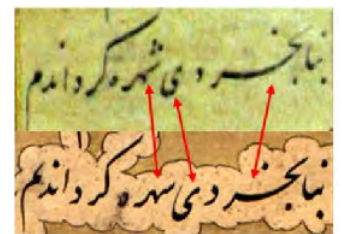 بنابخردی شهره کرداندم
بنابخردی سهره کرداندیم